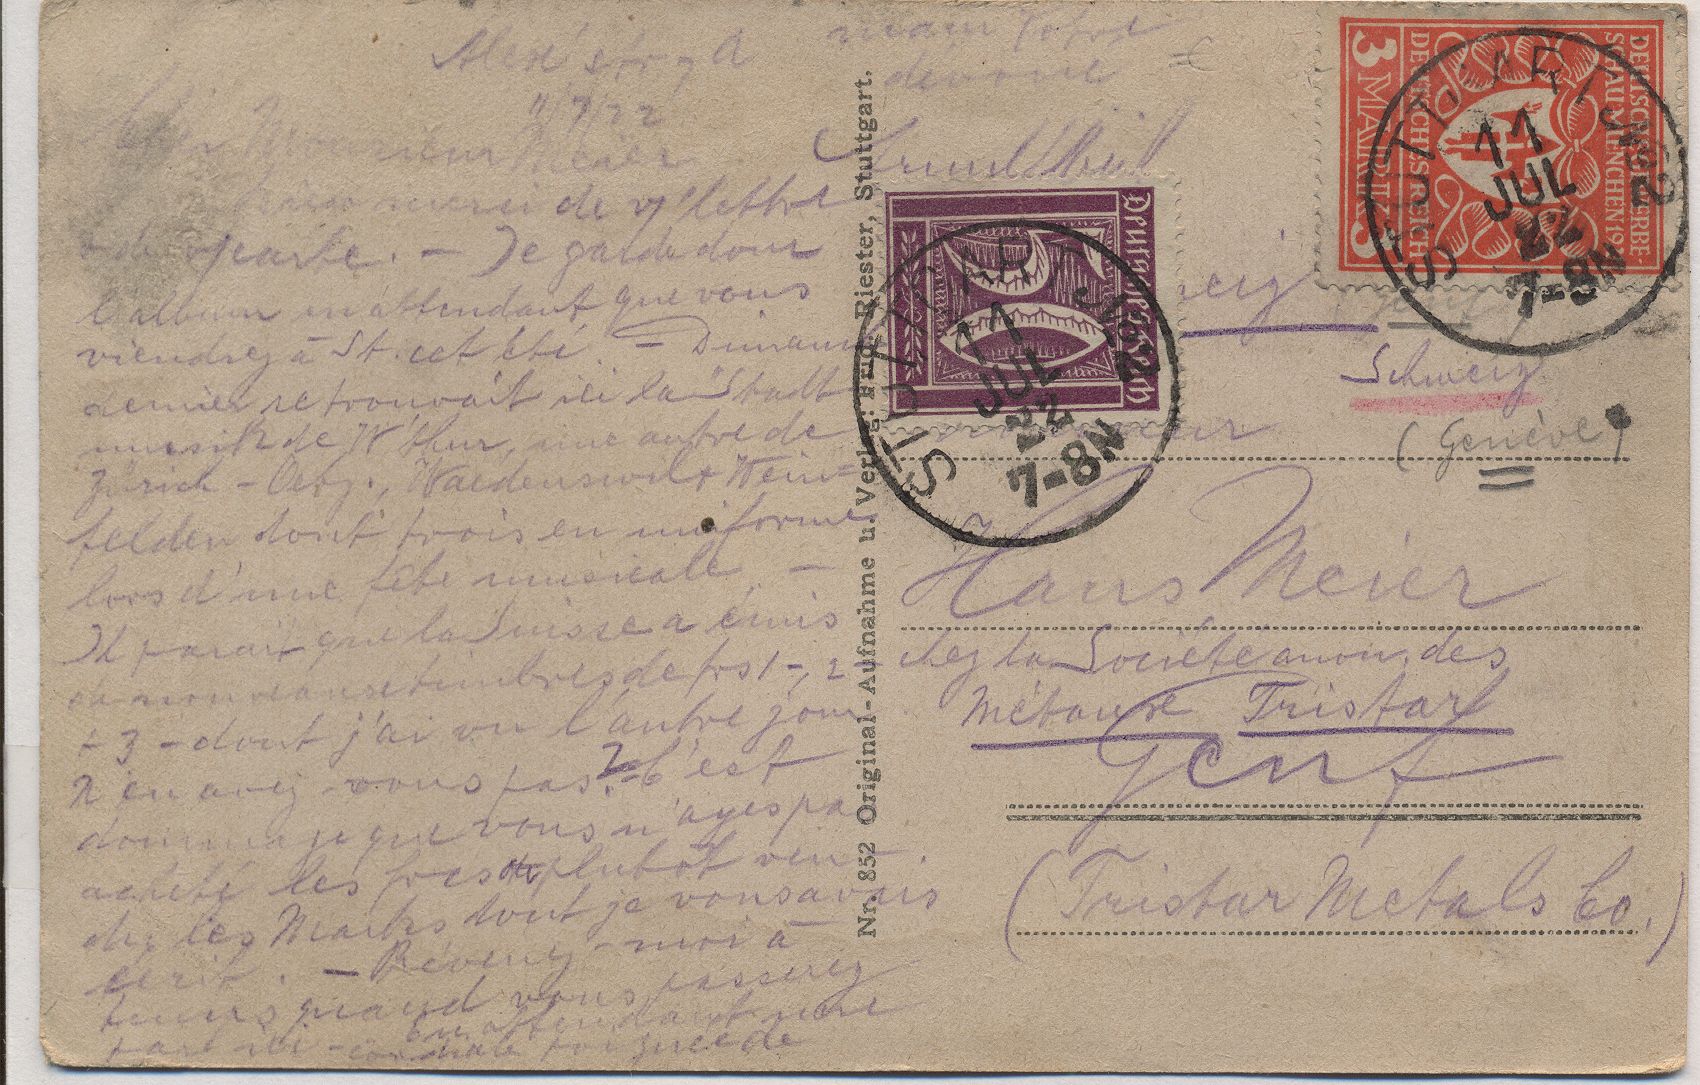 11/7/22
Monsieur Meier
merci de v/ lettre
carte. — Je garde donc
l'album en attendant que vous
viendrez à St. cet été. — Dimanche
dernier se trouvait ici la "Stadt
musik de W'thur, une autre de
Zürich - Oerg., Waedenswil + Wein-
felden dont trois en uniforme
lors d'une fête musicale. —
Il parait que la Suisse a émis
de nouveaux timbres de frs 1-, 2-
+ 3 - dont j'ai vu l'autre jour
N'en avez-vous pas? C'est
dommage que vous n'ayes pas
acheté les frcs plutôt ven-
du les Marks dont je vous avais
écrit. — Prévenez-moi à
temps quand vous passerez
par ici - En attendant une
cordiale poignée de
main Votre
dévoué
Nr. 852 Original-Aufnahme u. Verlag: Frdr. Riester, Stuttgart.
DEUTSCHE GEWERBE-
SCHAU MÜNCHEN 1922
DEUTSCHES REICH
3 MARK 3
STUTTGART
11
JUL
22
7-8N
Deutsches Reich
STUTTGART
11
JUL
22
7-8N
Schweiz
(Genève)
Monsieur
Hans Meier
chez la Société anon. des
Métaux Tristar
Genf
(Tristar Metals Co.)